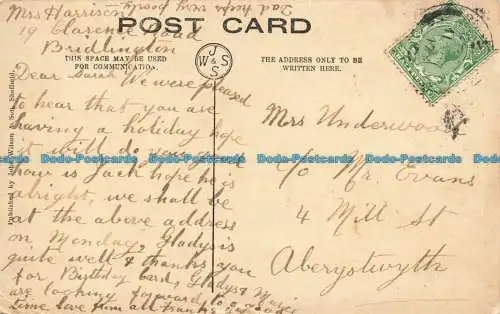 Mrs Harrison
19 Clarence Road
Bridlington
Dad keeps very poorly
POST CARD
THIS SPACE MAY BE USED
FOR COMMUNICATION.
J
W & S
S
THE ADDRESS ONLY TO BE
WRITTEN HERE.
Dear Sarah We were pleased
to hear that you are
having a holiday hope
it will do you good
how is Jack hope he is
alright, we shall be
at the above address
on Monday, Gladys is
quite well & thanks you
for Birthday Card, Gladys &
are looking forward to a good
time love from all
Mrs Underwood
c/o Mr Evans
4 Mill St
Aberystwyth
Published by John Wilson & Son, Sheffield.
Dodo-Postcards Dodo-Postcards Dodo-Postcards Dodo-Postcards Dodo-Postcards